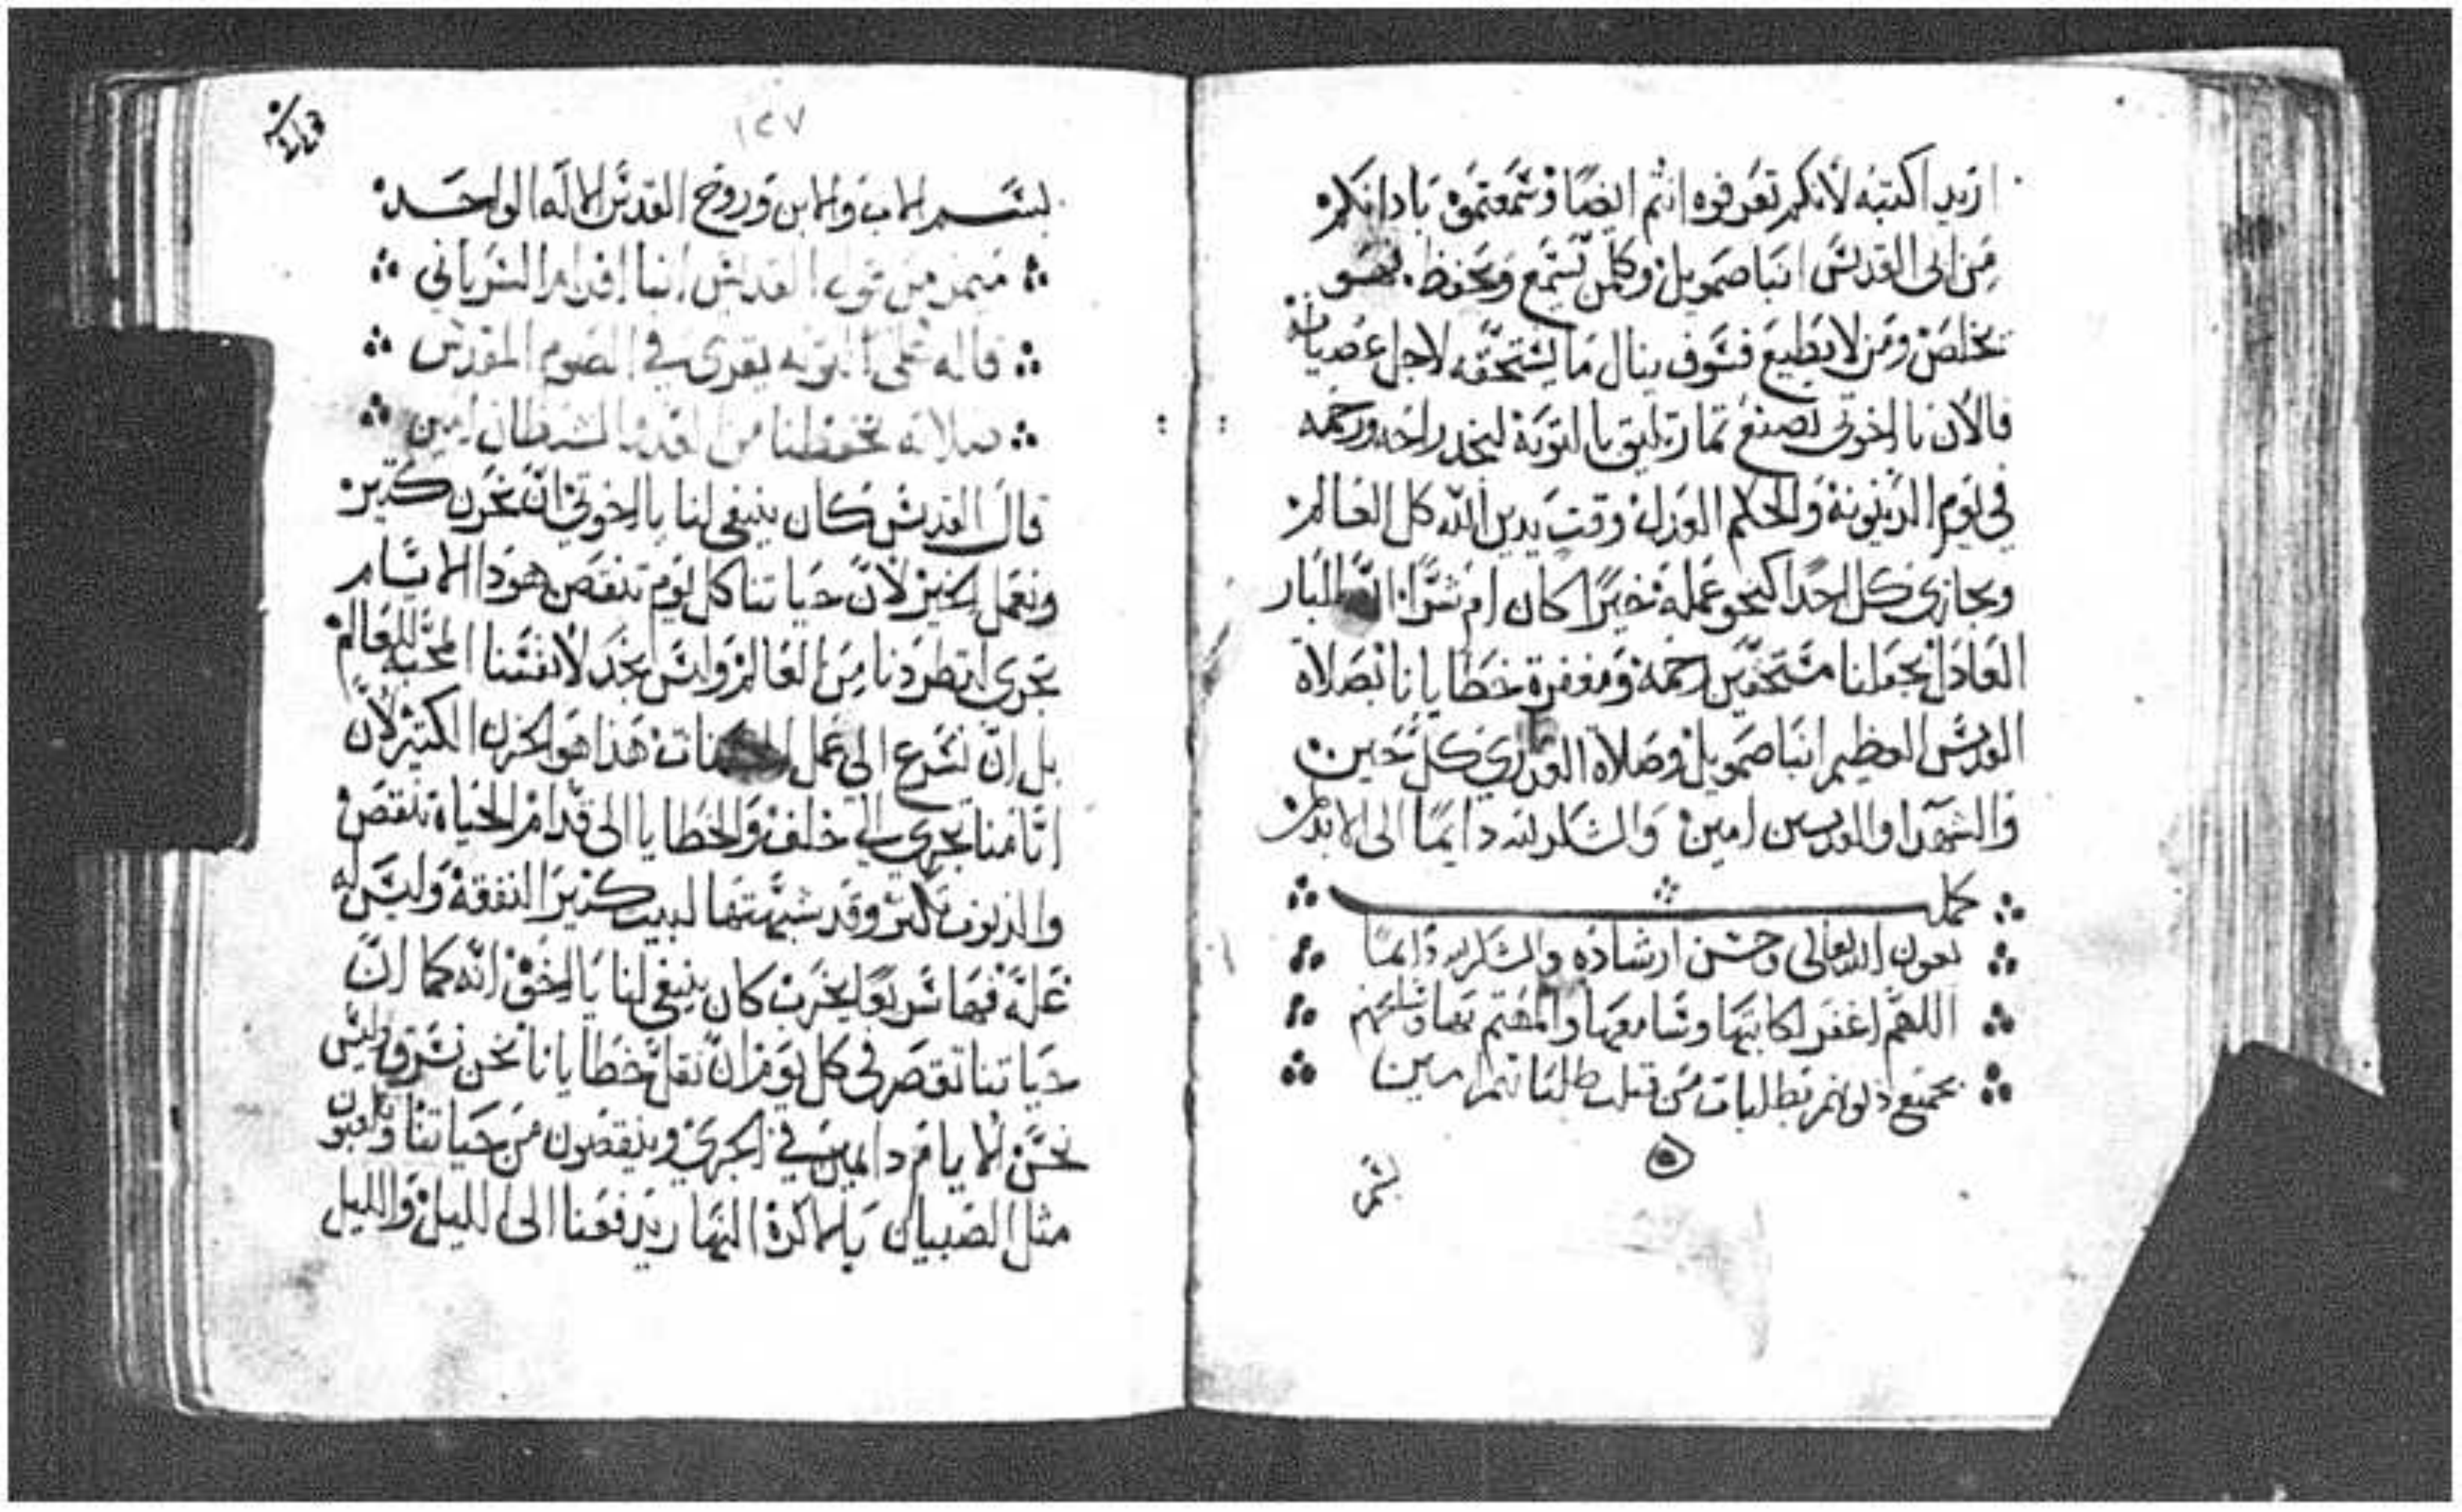 اريد اكتبه لانكم تعرفوه انتم ايضا وسمعتموه باذانكم
من ابي القديس انبا صمويل وكلمن يسمع ويحفظ فهو
يخلص ومن لا يطيع فسوف ينال ما يستحقه لاجل عصيانه
فالان يا اخوتي نصنع ثمار تليق بالتوبة لنجد راحه ورحمه
في يوم الدينونة والحكم العدل وقت يدين الله كل العالم
ويجازي كل احدا كنحو عمله خيرا كان ام شرا البار
العادل يجعلنا مستحقين رحمه ومغفرة خطايانا بصلاة
القديس العظيم انبا صمويل وصلاة العذري كل حين
والشهدا والقديسين امين والشكر لله دايما الى الابد
كمل
بعون الله تعالى وحسن ارشاده والشكر لله دايما
اللهم اغفر لكاتبها وسامعها والمهتم بها
بجميع ذنوبهم بطلبات من قبلت طلباتهم امين
بسم
١٤٧
بسم الاب والابن وروح القدس الاله الواحد
ميمر من قول القديس انبا افرام السرياني
قاله على التوبه يقرى في الصوم المقدس
صلاته تحفظنا من الشيطان امين
قال القديس كان ينبغي لنا يا اخوتي ان نحزن كثير
ونعمل الخير لان حياتنا كل يوم تنقص هوذا الايام
تجري لتطردنا من العالم وليس نجد لانفسنا المحبه للعالم
بل ان نسرع الى عمل الحسنات هذا هو الحزن الكثير لان
ايامنا تجري الى خلف والخطايا الى قدام الحياة تنقص
والذنوب تكثر وقد شبهتها لبيت كثير النفقة وليس له
غلة فيها سريعا يخرب كان ينبغي لنا يا اخوة انه كما ان
حياتنا تقصر في كل يوم ان نقلل خطايانا نحن نسرق وليس
نحس الايام دايمين في الجري وينقصون من حياتنا
مثل الصبيان بالاكرة النهار يدفعنا الى الليل والليل